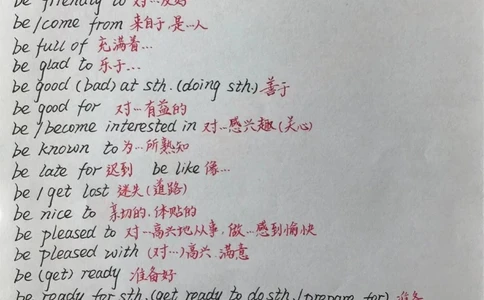 be friendly to 对…友好
be/come from 来自于,是…人
be full of 充满着…
be glad to 乐于…
be good (bad) at sth. (doing sth.) 善于
be good for 对…有益的
be/become interested in 对…感兴趣(关心)
be known to 为…所熟知
be late for 迟到 be like 像…
be/get lost 迷失(道路)
be nice to 亲切的.体贴的
be pleased to 对…高兴地从事,做…感到愉快
be pleased with (对…)高兴.满意
be (get) ready 准备好
be ready for sth. (get ready to do sth./prepare for) 准备